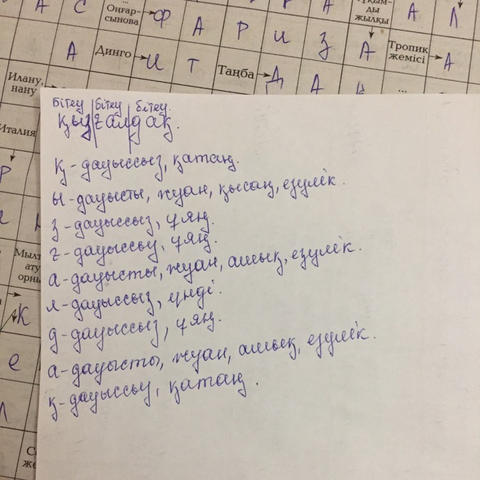 А С Оңғар-сынова Ф А Р И З А А Л
ды жылқы
А Динго И Т Таңба Д А Тропик жемісі А
Илану, нану
Италия
бітеу бітеу бітеу
қыз|ғал|дақ.
қ - дауыссыз, қатаң.
ы - дауысты, жуан, қысаң, езулік.
з - дауыссыз, ұяң.
ғ - дауыссыз, ұяң.
а - дауысты, жуан, ашық, езулік.
л - дауыссыз, үнді.
д - дауыссыз, ұяң.
а - дауысты, жуан, ашық, езулік.
қ - дауыссыз, қатаң.
К
е